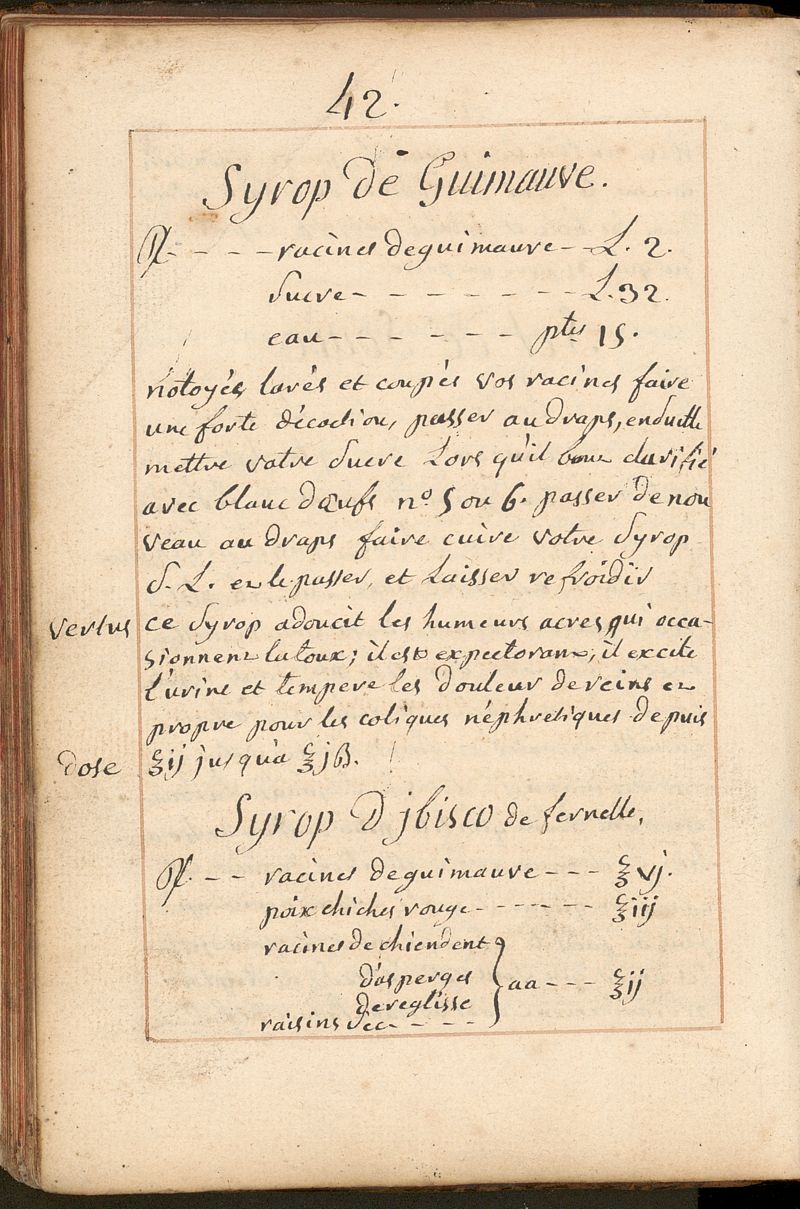 42.
Syrop de Guimauve.
℞ - - - - racines de guimauve - - L. 2.
sucre - - - - - - - - L. 32.
eau - - - - - - - ptes 15.
netoyés lavés et coupés vos racines faire
une forte décoction, passer au draps, ensuitte
mettre votre sucre Lors qu'il bout clarifié
avec blanc dœufs nº 5 ou 6. passer de nou
veau au draps faire cuire votre Syrop
S. L. et le passer, et Laisser refroidir
vertus ce Syrop adoucit les humeurs acres qui occa-
sionnent la toux; il est expectorant, il excite
l'urine et tempere les douleur de reins et
propre pour les coliques néphretiques depuis
dose ℥ij jusqu'a ℥jß.
Syrop D jbisco de fernelle,
℞. - - racines de guimauve - - - ℥vj.
poix chiches rouge - - - - - - - ℥iij
racines de chiendent
d'asperges } aa - - - ℥ij
de reglisse
raisins sec - - - -